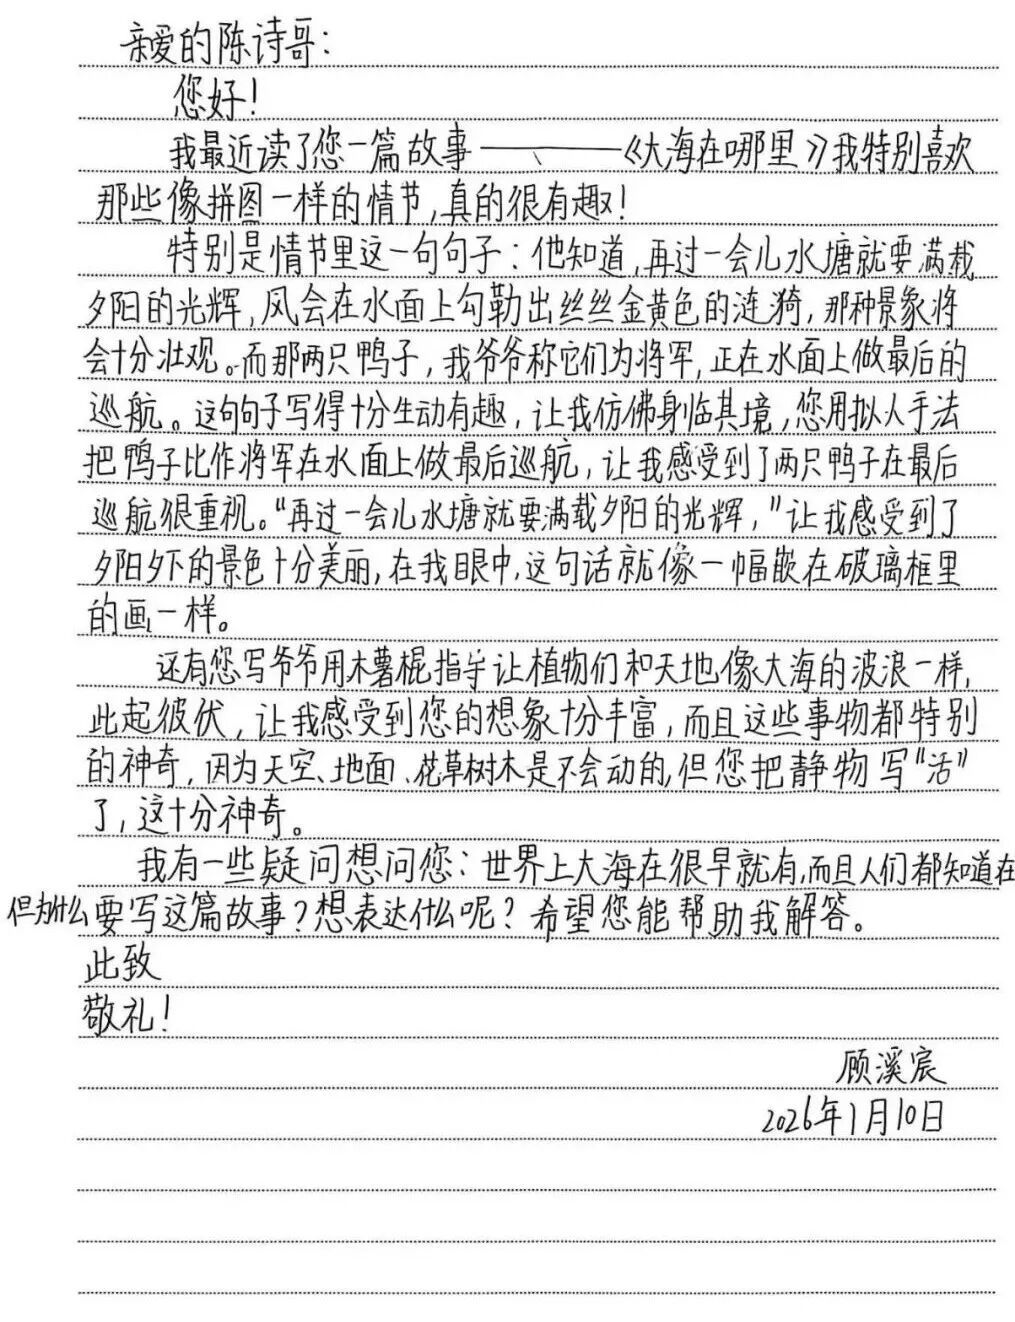 亲爱的陈诗哥：
您好！
我最近读了您一篇故事———《大海在哪里》我特别喜欢
那些像拼图一样的情节，真的很有趣！
特别是情节里这一句句子：他知道，再过一会儿水塘就要满载
夕阳的光辉，风会在水面上勾勒出丝丝金黄色的涟漪，那种景象将
会十分壮观。而那两只鸭子，我爷爷称它们为将军，正在水面上做最后的
巡航。这句句子写得十分生动有趣，让我仿佛身临其境，您用拟人手法
把鸭子比作将军在水面上做最后巡航，让我感受到了两只鸭子在最后
巡航很重视。“再过一会儿水塘就要满载夕阳的光辉，”让我感受到了
夕阳夕下的景色十分美丽，在我眼中，这句话就像一幅嵌在玻璃框里
的画一样。
还有您写爷爷用木薯棍指挥让植物们和天地像大海的波浪一样，
此起彼伏，让我感受到您的想象十分丰富，而且这些事物都特别
的神奇，因为天空、地面、花草树木是不会动的，但您把静物写“活”
了，这十分神奇。
我有一些疑问想问您：世界上大海在很早就有，而且人们都知道在
但为什么要写这篇故事？想表达什么呢？希望您能帮助我解答。
此致
敬礼！
顾溪宸
2026年1月10日